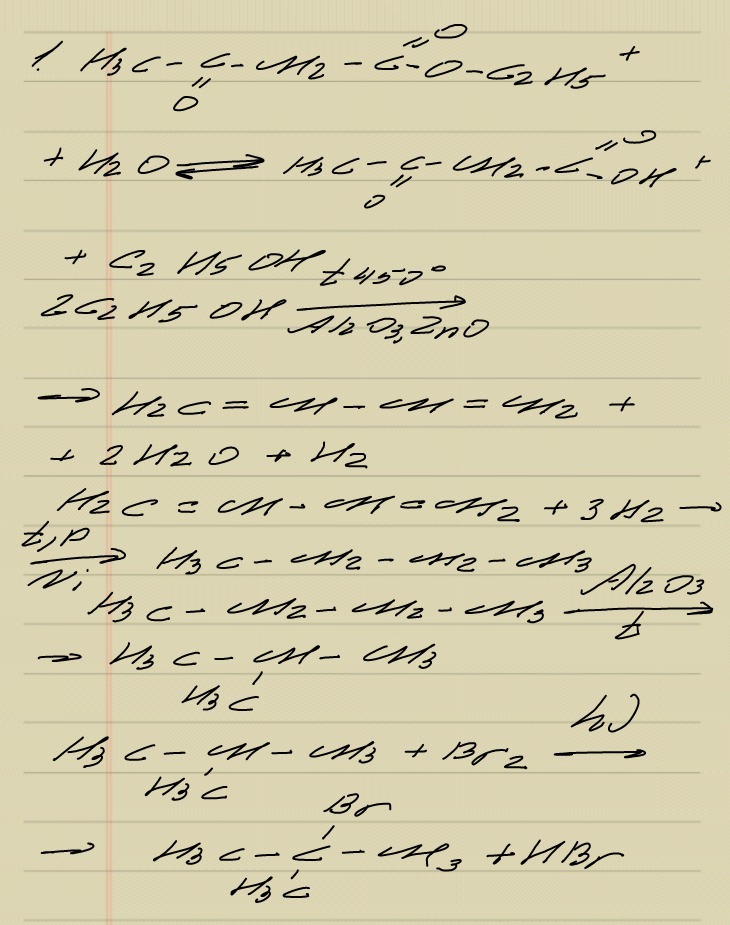 1. H3C - C - CH2 - C - O - C2H5 +
=O
=O
+ H2O ⇌ H3C - C - CH2 - C - OH +
=O
=O
+ C2H5OH
2C2H5OH t 450° → Al2O3, ZnO
→ H2C = CH - CH = CH2 +
+ 2H2O + H2
H2C = CH - CH = CH2 + 3H2 →
t, p → Ni H3C - CH2 - CH2 - CH3
H3C - CH2 - CH2 - CH3 Al2O3 → t
→ H3C - CH - CH3
H3C
H3C - CH - CH3 + Br2 hν →
H3C
Br
→ H3C - C - CH3 + HBr
H3C